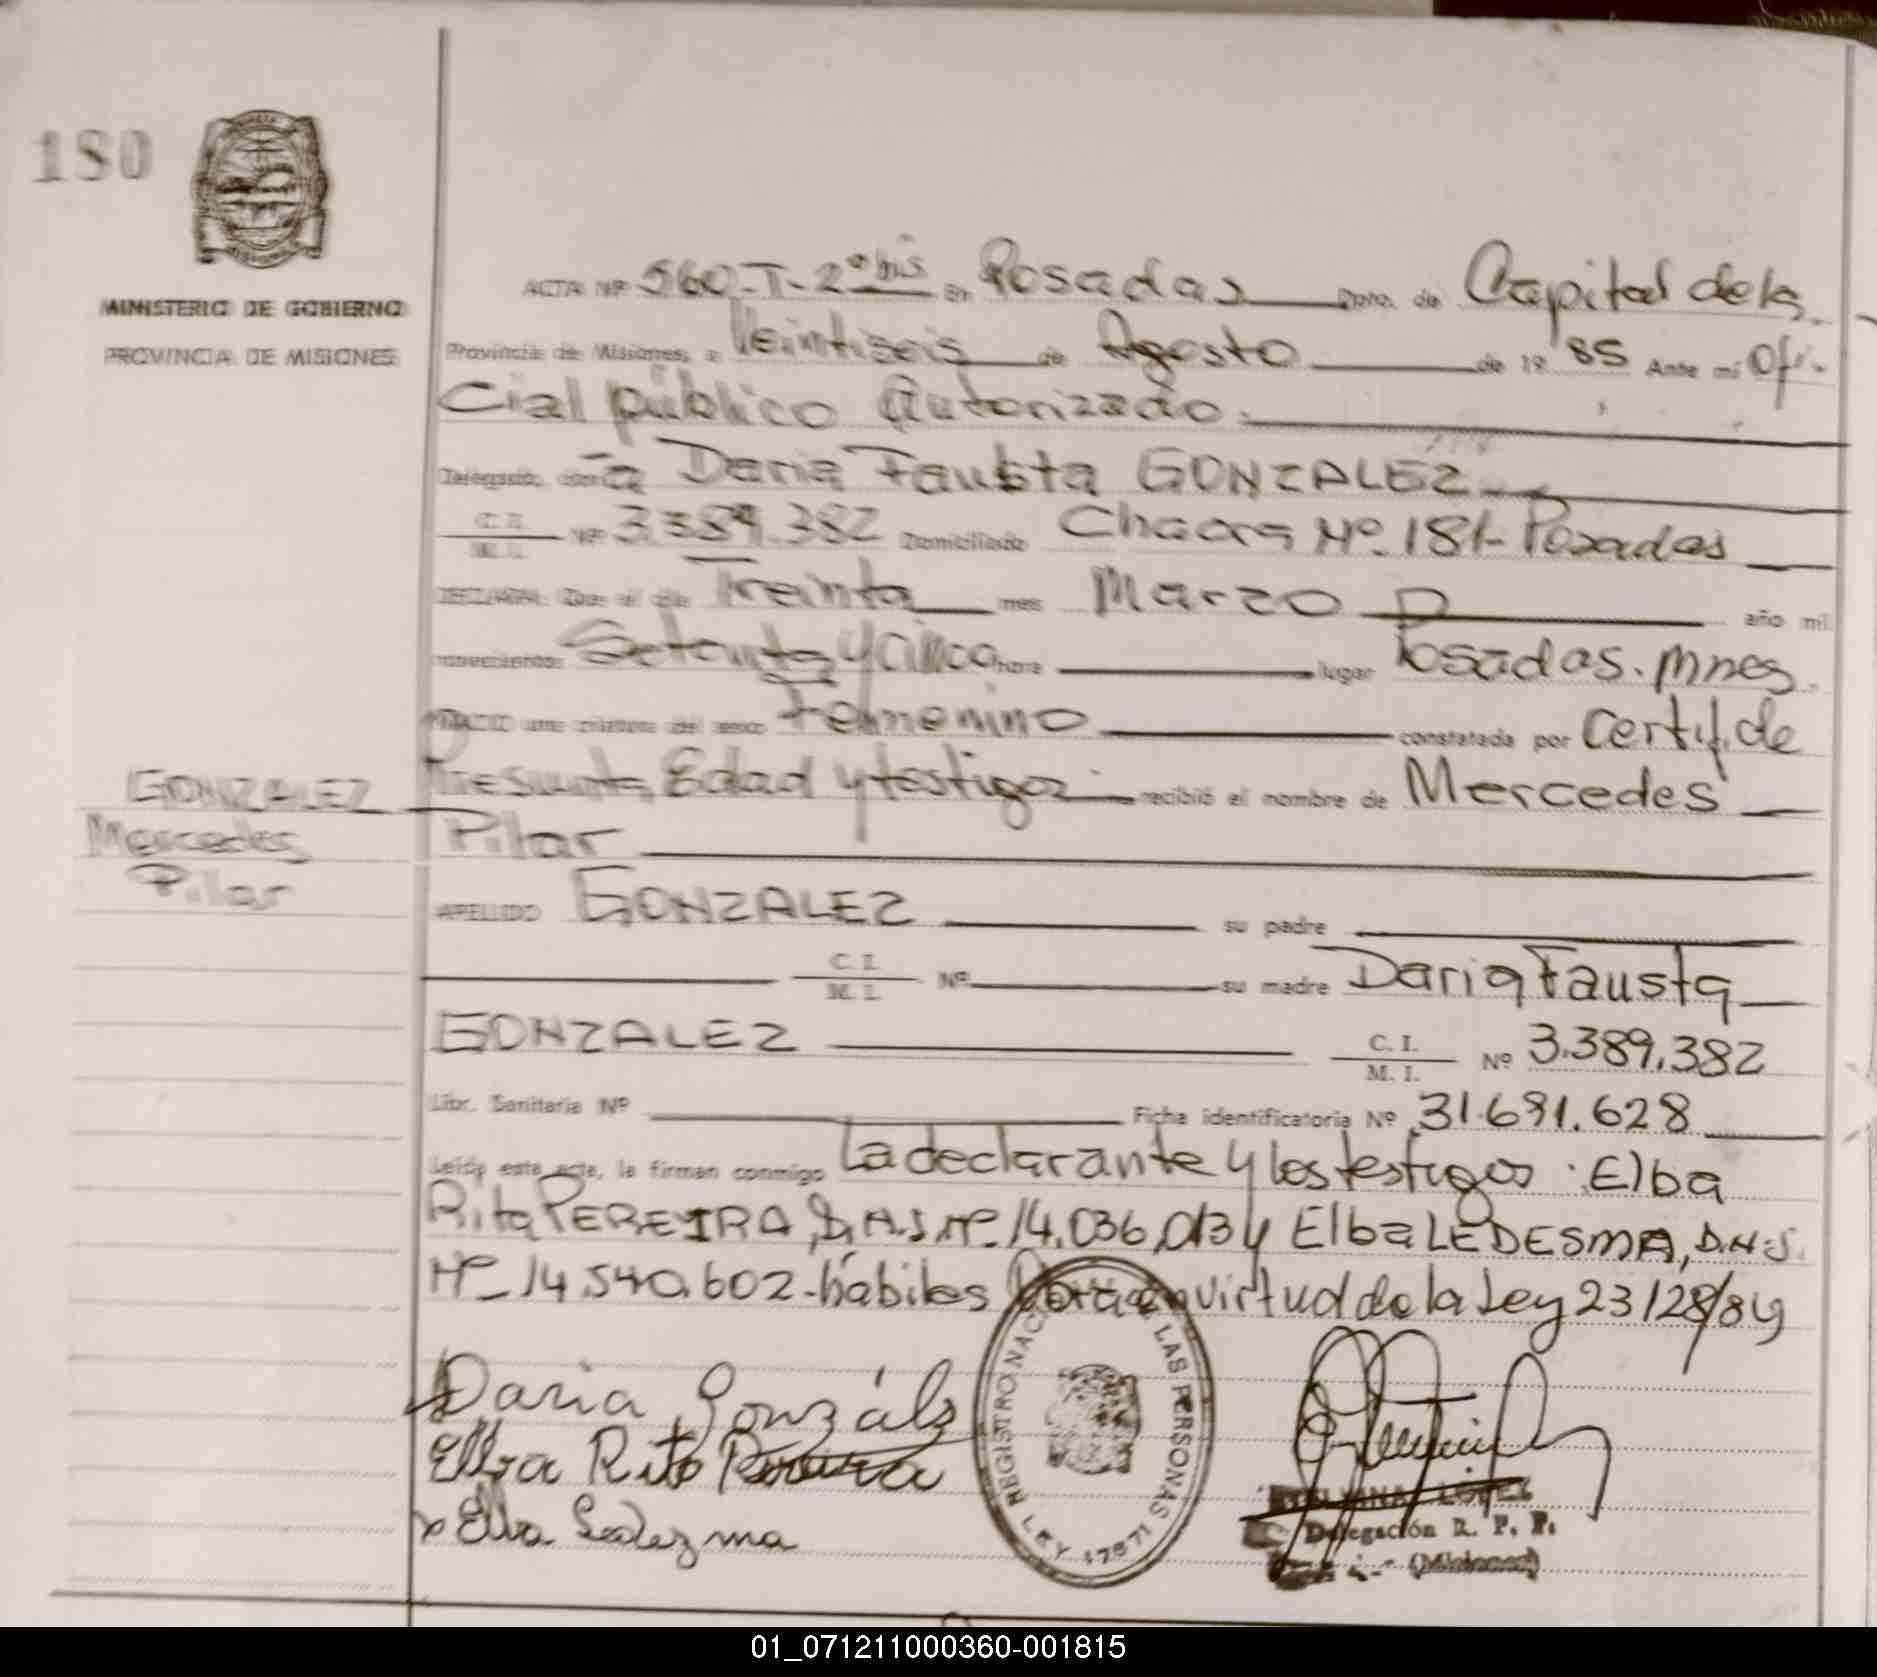 180
MINISTERIO DE GOBIERNO
PROVINCIA DE MISIONES
ACTA Nº 560-T-2º bis en Posadas Dpto. de Capital de la
Provincia de Misiones, a Veintiseis de Agosto de 19 85 Ante mi Ofi-
cial público Autorizado
Delegado, doña Daria Fausta GONZALEZ
C. I. M. I. Nº 3.389.382 Domiciliado Chacra Nº. 181- Posadas
DECLARA: Que el día Treinta mes Marzo año mil
novecientos Setenta y Cinco hora lugar Posadas. Mnes.
NACIO una criatura del sexo Femenino constatada por Certif. de
Presunta Edad y testigos recibió el nombre de Mercedes
Pilar
GONZALEZ
Mercedes
Pilar
APELLIDO GONZALEZ su padre
C. I. M. I. Nº su madre Daria Fausta
GONZALEZ C. I. M. I. Nº 3.389.382
Libr. Sanitaria Nº Ficha identificatoria Nº 31.691.628
Leída esta acta, la firman conmigo La declarante y los testigos: Elba
Rita PEREYRA, Nº 14.036.013 y Elba LEDESMA, D.N.I.
Nº 14.540.602-hábiles en virtud de la Ley 23128/84
Daria Gonzáles
Elba Rita Pereira
x Elba Ledezma
REGISTRO NACIONAL DE LAS PERSONAS
LEY 17671
LOPEZ
Delegación R. P. P.
(Misiones)
01_071211000360-001815